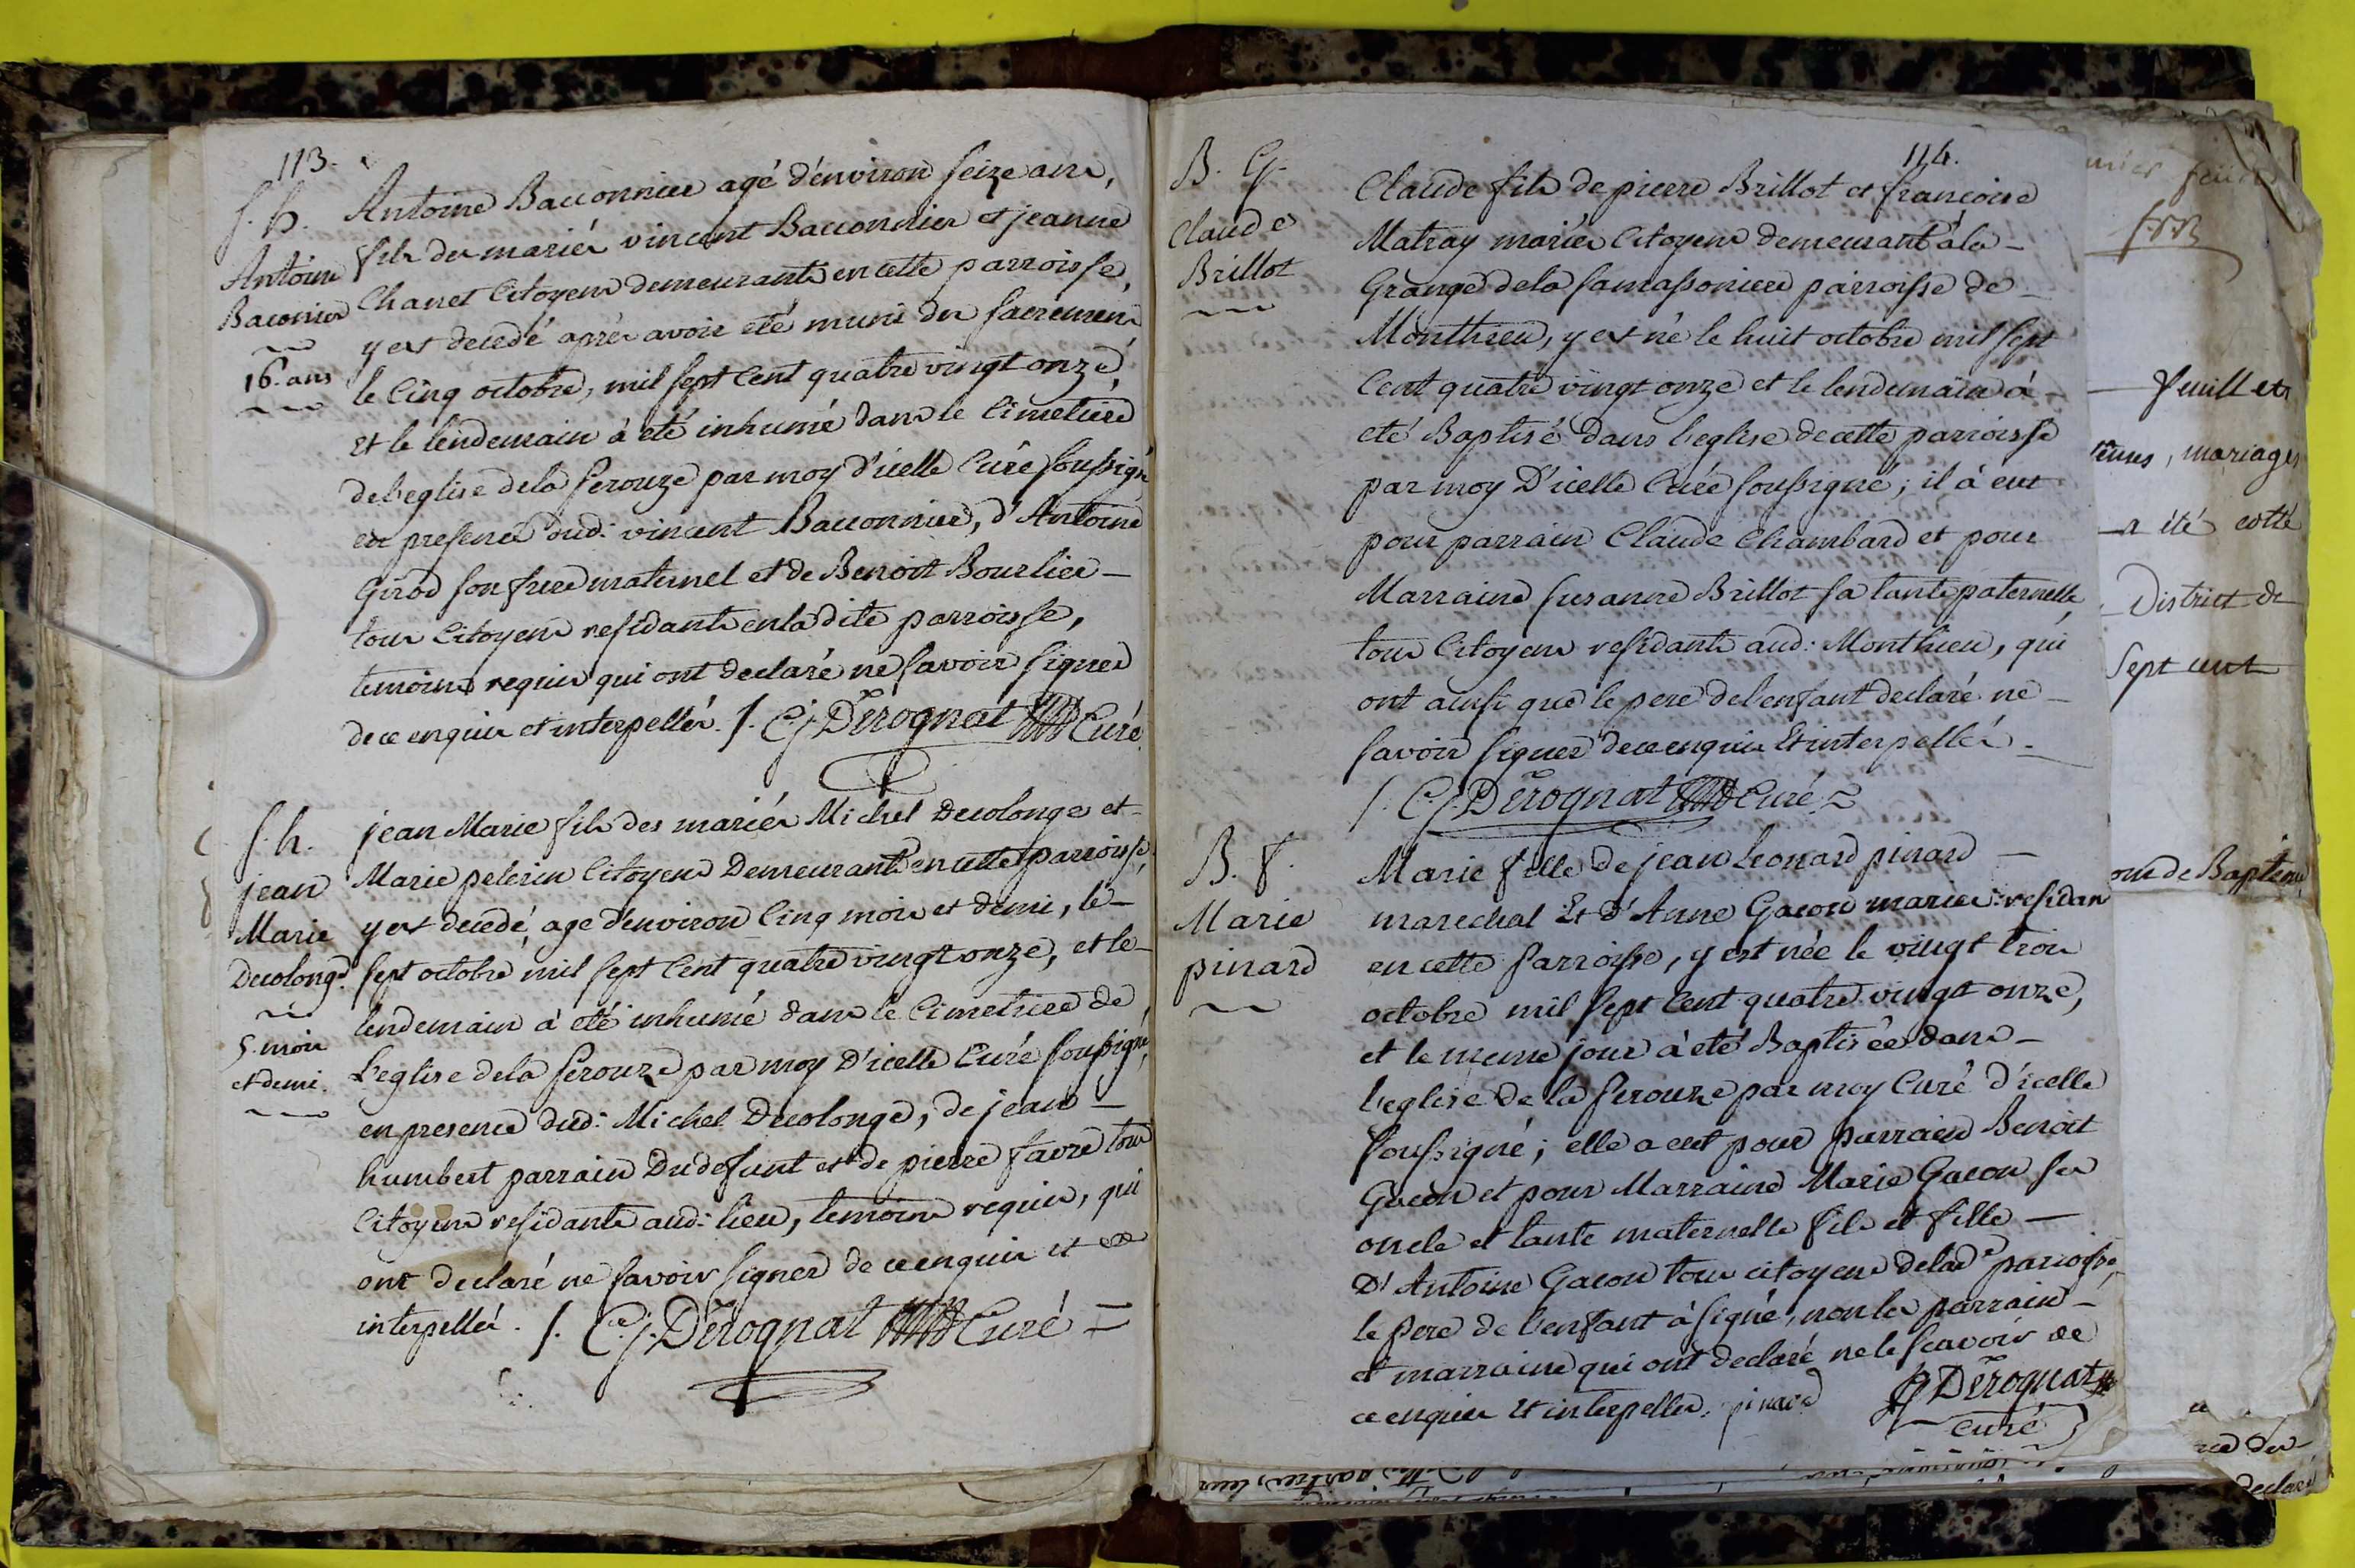 113.
S. h.
Antoine
Baconier
16. ans
Antoine Bacconnier agé d'environ seize ans,
fils des mariés vincent Bacconnier et jeanne
Chanet Citoyens demeurants en cette parroisse,
y est decedé après avoir eté muni des sacremens
le Cinq octobre, mil sept Cent quatre vingt onze,
et le lendemain à eté inhumé dans le Cimetiere
de l'eglise de la Perouze par moy d'icelle Curé soussigné
en presence dud: vincent Bacconnier, d'Antoine
Girod son frere maternel et de Benoit Bourlier –
tous Citoyens residants en la dite parroisse,
temoins requis qui ont declaré ne savoir signer
de ce enquis et interpellés. /. C. j. Dérognat Curé
S. h.
jean
Marie
Decolonge.
5. mois
et demi.
jean Marie fils des mariés Michel Decolonge et
Marie pelerin Citoyens Demeurants en cette parroisse,
y est decedé, age d'environ Cinq mois et demi, le –
sept octobre mil sept Cent quatre vingt onze, et le –
lendemain à eté inhumé dans le Cimetiere de
L'eglise de la Perouze par moy D'icelle Curé soussigné,
en presence dud: Michel Decolonge, de jean –
humbert parrain Du defunt et de pierre favre tous
Citoyens residants aud: lieu, temoins requis, qui
ont declaré ne savoir signer de ce enquis et
interpellés. /. C. j. Dérognat Curé =
114.
B. G.
Claude
Brillot
Claude fils de pierre Brillot et françoise
Matray mariés Citoyens demeurant à la –
Grange de la samassoniere parroisse de –
Monthieu, y est né le huit octobre mil sept
Cent quatre vingt onze et le lendemain à –
eté Baptisé dans l'eglise de cette parroisse
par moy D'icelle Curé soussigné; il à eut
pour parrain Claude Chambard et pour
Marraine susanne Brillot sa tante paternelle,
tous Citoyens residants aud: Monthieu, qui
ont ainsi que le pere de l'enfant declaré ne –
savoir signer de ce enquis Et interpellés. –
/. C. j. Dérognat Curé
B. f.
Marie
pinard
Marie fille de jean Leonard pinard –
marechal Et D'Anne Gacon mariés residan
en cette parroisse, y est née le vingt trois
octobre mil sept Cent quatre vingt onze,
et le meme jour à eté Baptisée dans –
l'eglise de la Perouze par moy Curé d'icelle
soussigné; elle a eut pour parrain Benoit
Gacon et pour Marraine Marie Gacon ses
oncle et tante maternelle fils et fille –
D'Antoine Gacon tous citoyens de lad.e parroisse,
le pere de l'enfant à signé, non les parrain –
et marraine qui ont declaré ne le scavoir de
ce enquis Et interpellés. pinard C. j. Dérognat
Curé
feuillets
mariages
a été cotté
District de
Sept cent
de Baptême